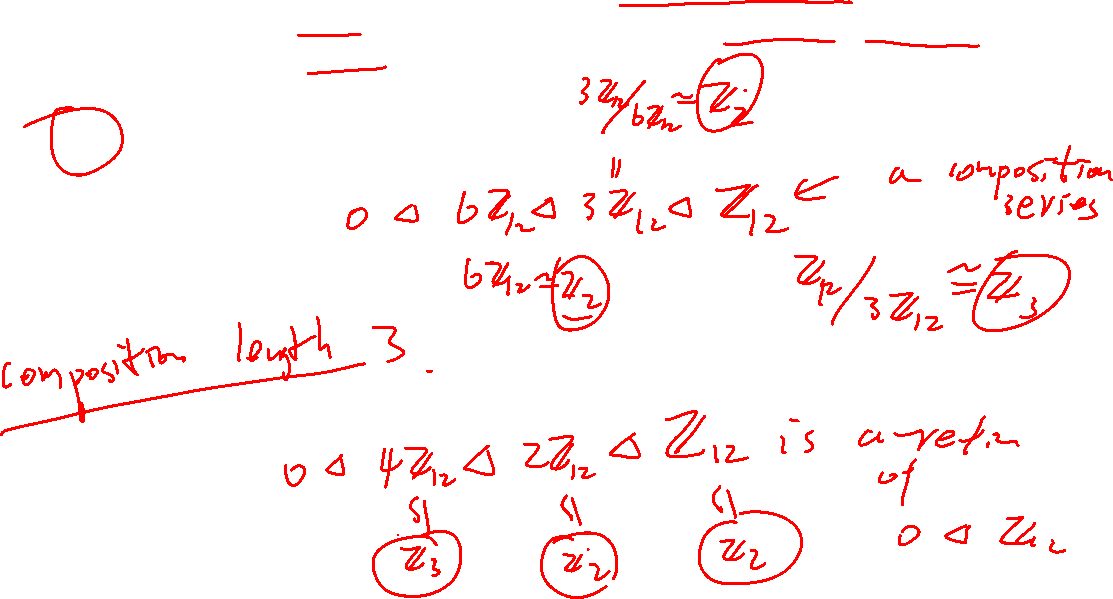 3ℤ₁₂/6ℤ₁₂ ≅ ℤ₂
0 ◁ 6ℤ₁₂ ◁ 3ℤ₁₂ ◁ ℤ₁₂ ← a composition series
6ℤ₁₂ ≅ ℤ₂ ℤ₁₂/3ℤ₁₂ ≅ ℤ₃
composition length 3.
0 ◁ 4ℤ₁₂ ◁ 2ℤ₁₂ ◁ ℤ₁₂ is a refin
of
0 ◁ ℤ₁₂
ℤ₃ ℤ₂ ℤ₂